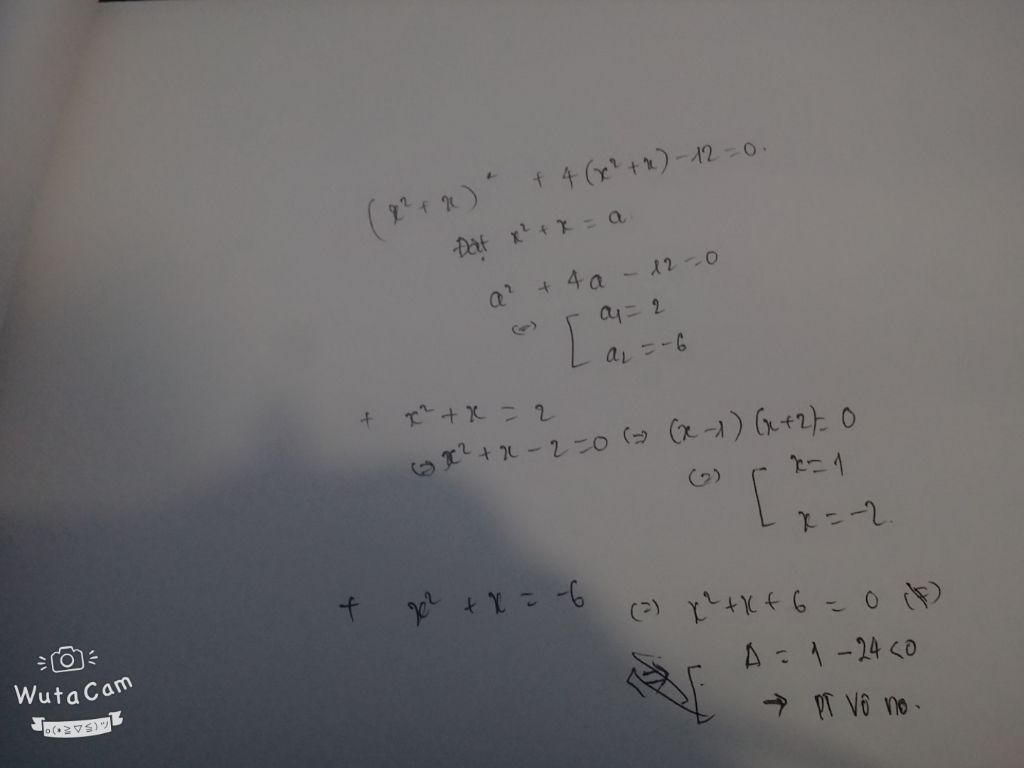 (x² + x)² + 4(x² + x) - 12 = 0.
Đặt x² + x = a.
a² + 4a - 12 = 0
⇔ [ a₁ = 2
a₂ = -6
+ x² + x = 2
⇔ x² + x - 2 = 0 ⇔ (x - 1)(x + 2) = 0
⇔ [ x = 1
x = -2.
+ x² + x = -6 ⇔ x² + x + 6 = 0
Δ = 1 - 24 < 0
→ PT Vô no.
WutaCam
o(*≧▽≦)ツ